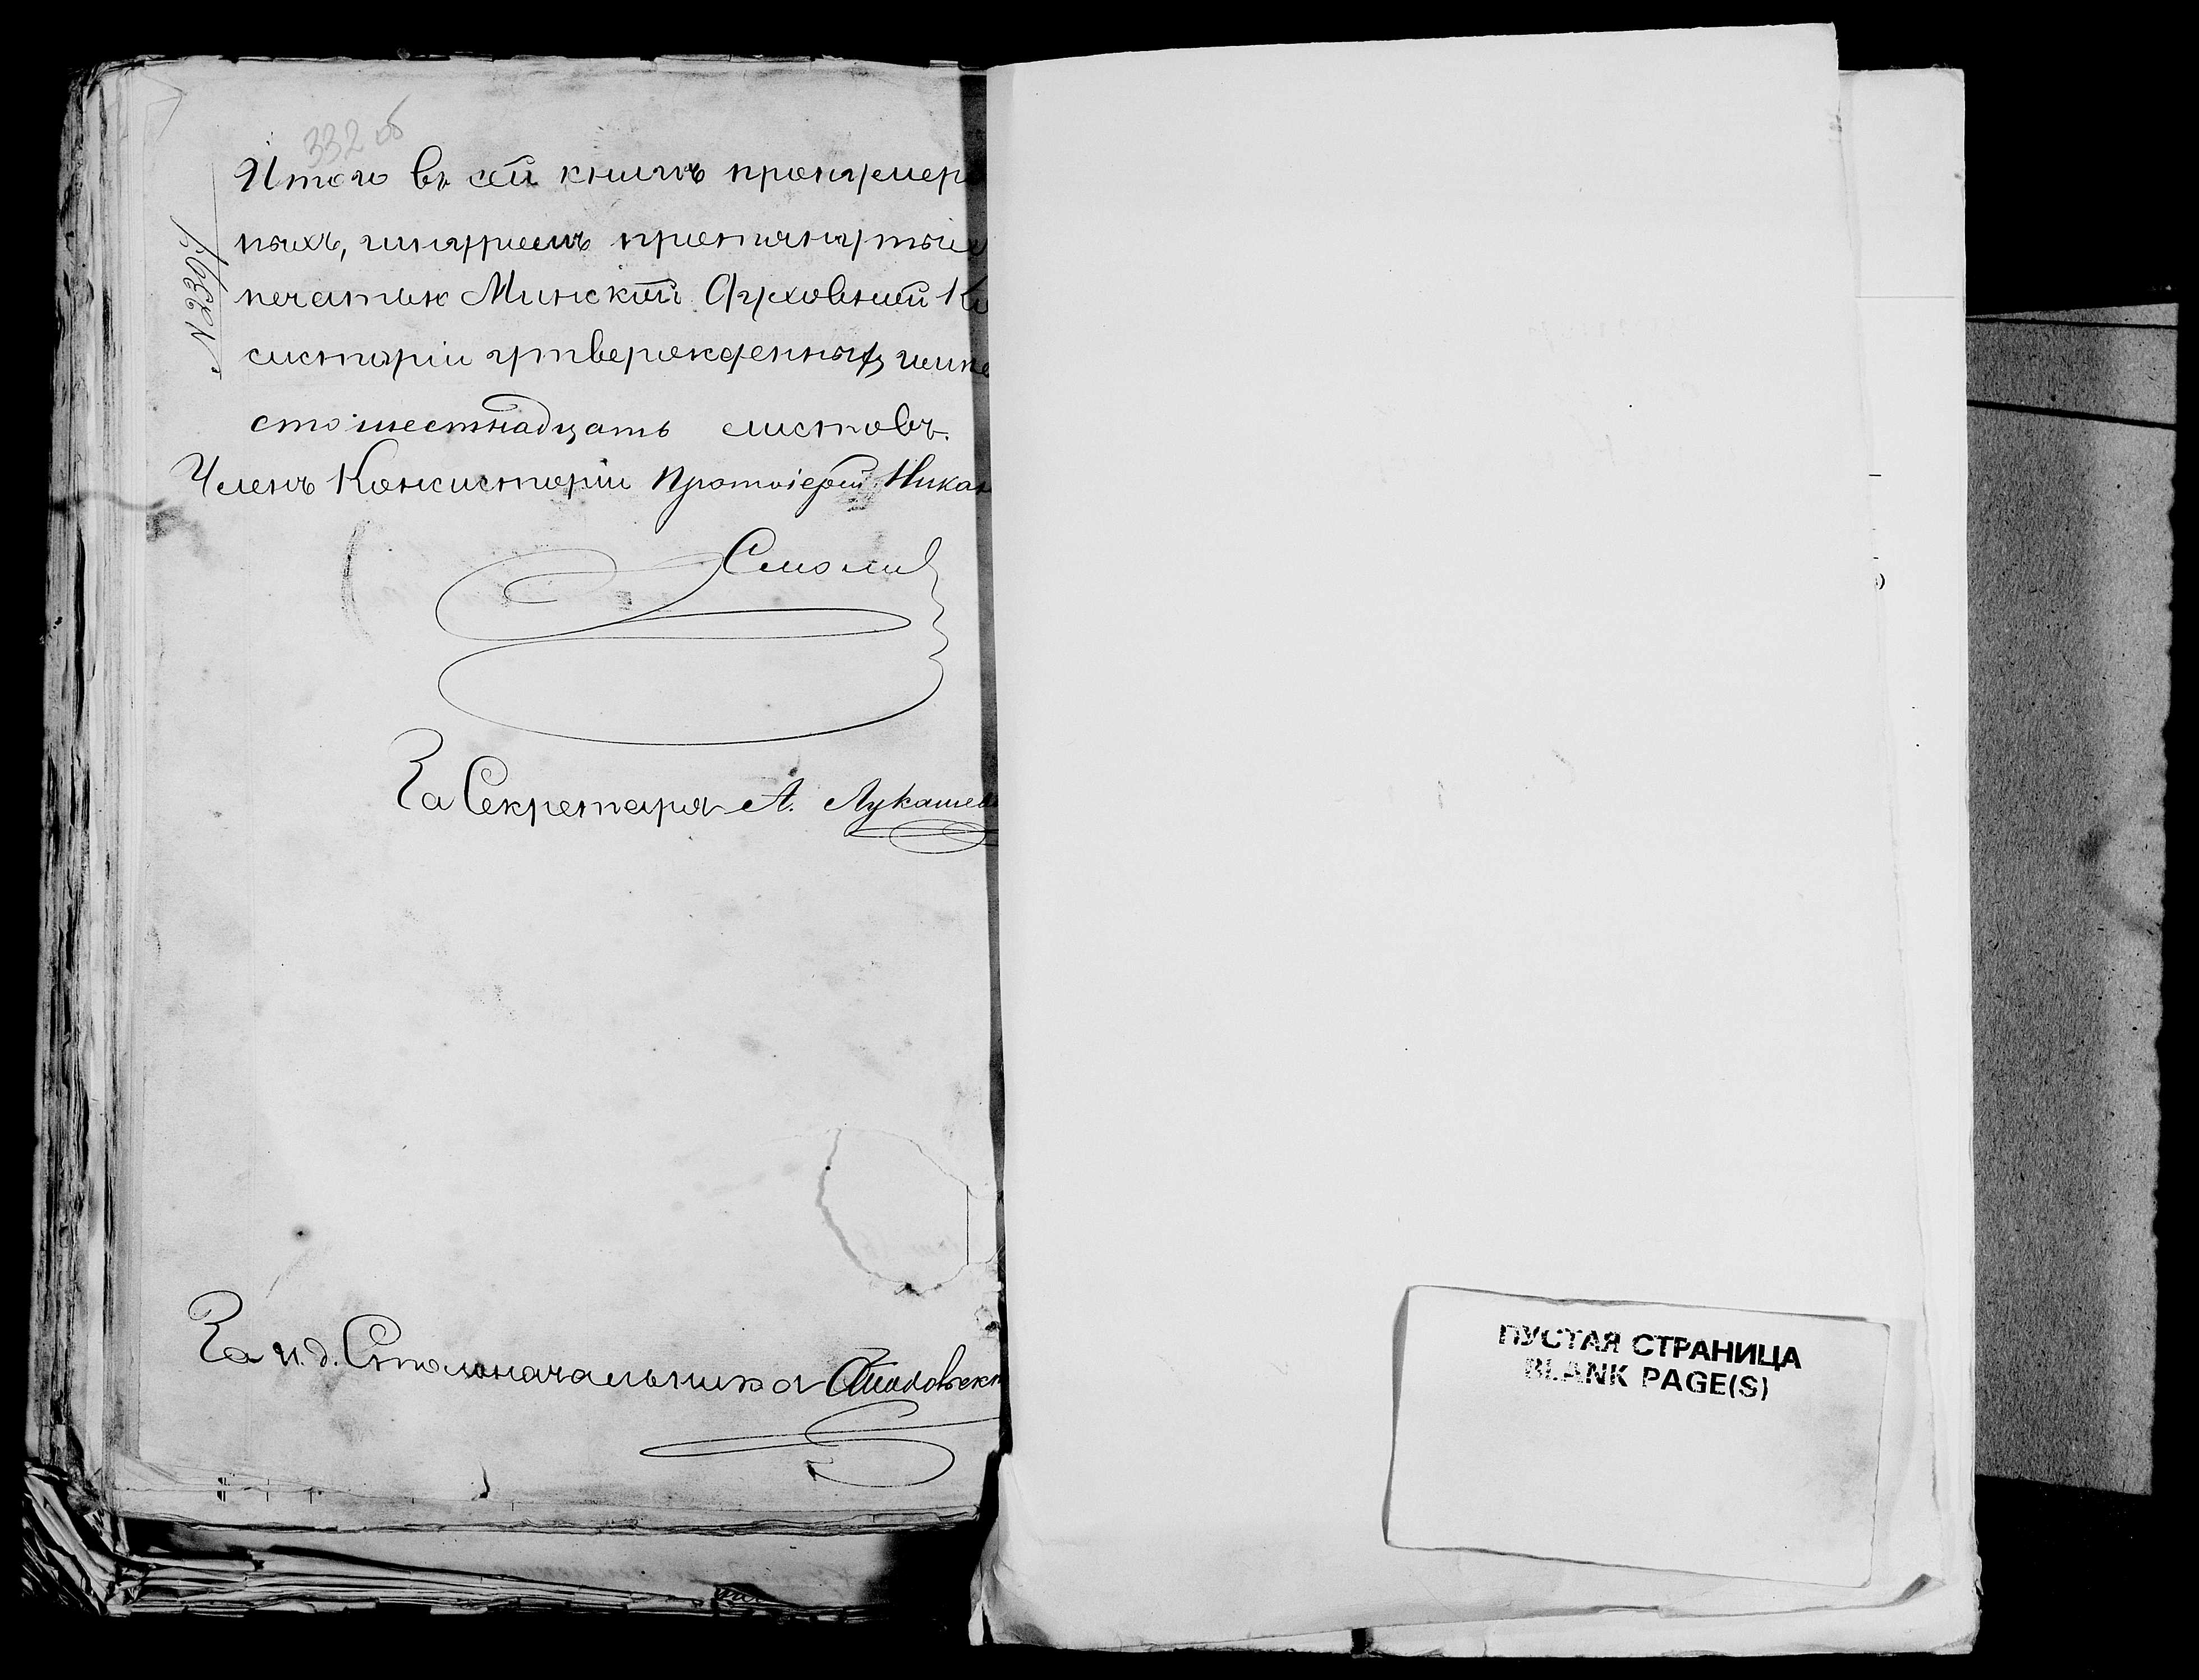 332 об
Итого въ сей книгѣ пронумеро
ныхъ, шнуромъ пропнутых
печатью Минской Духовной Ко
систоріи утвержденныхъ
сто шестнадцать листовъ.
Членъ Консисторіи Протоіерей Никан
Смоли
За Секретаря А. Лукашев
За и. д. Столоначальника
№ 2397
ПУСТАЯ СТРАНИЦА
BLANK PAGE(S)